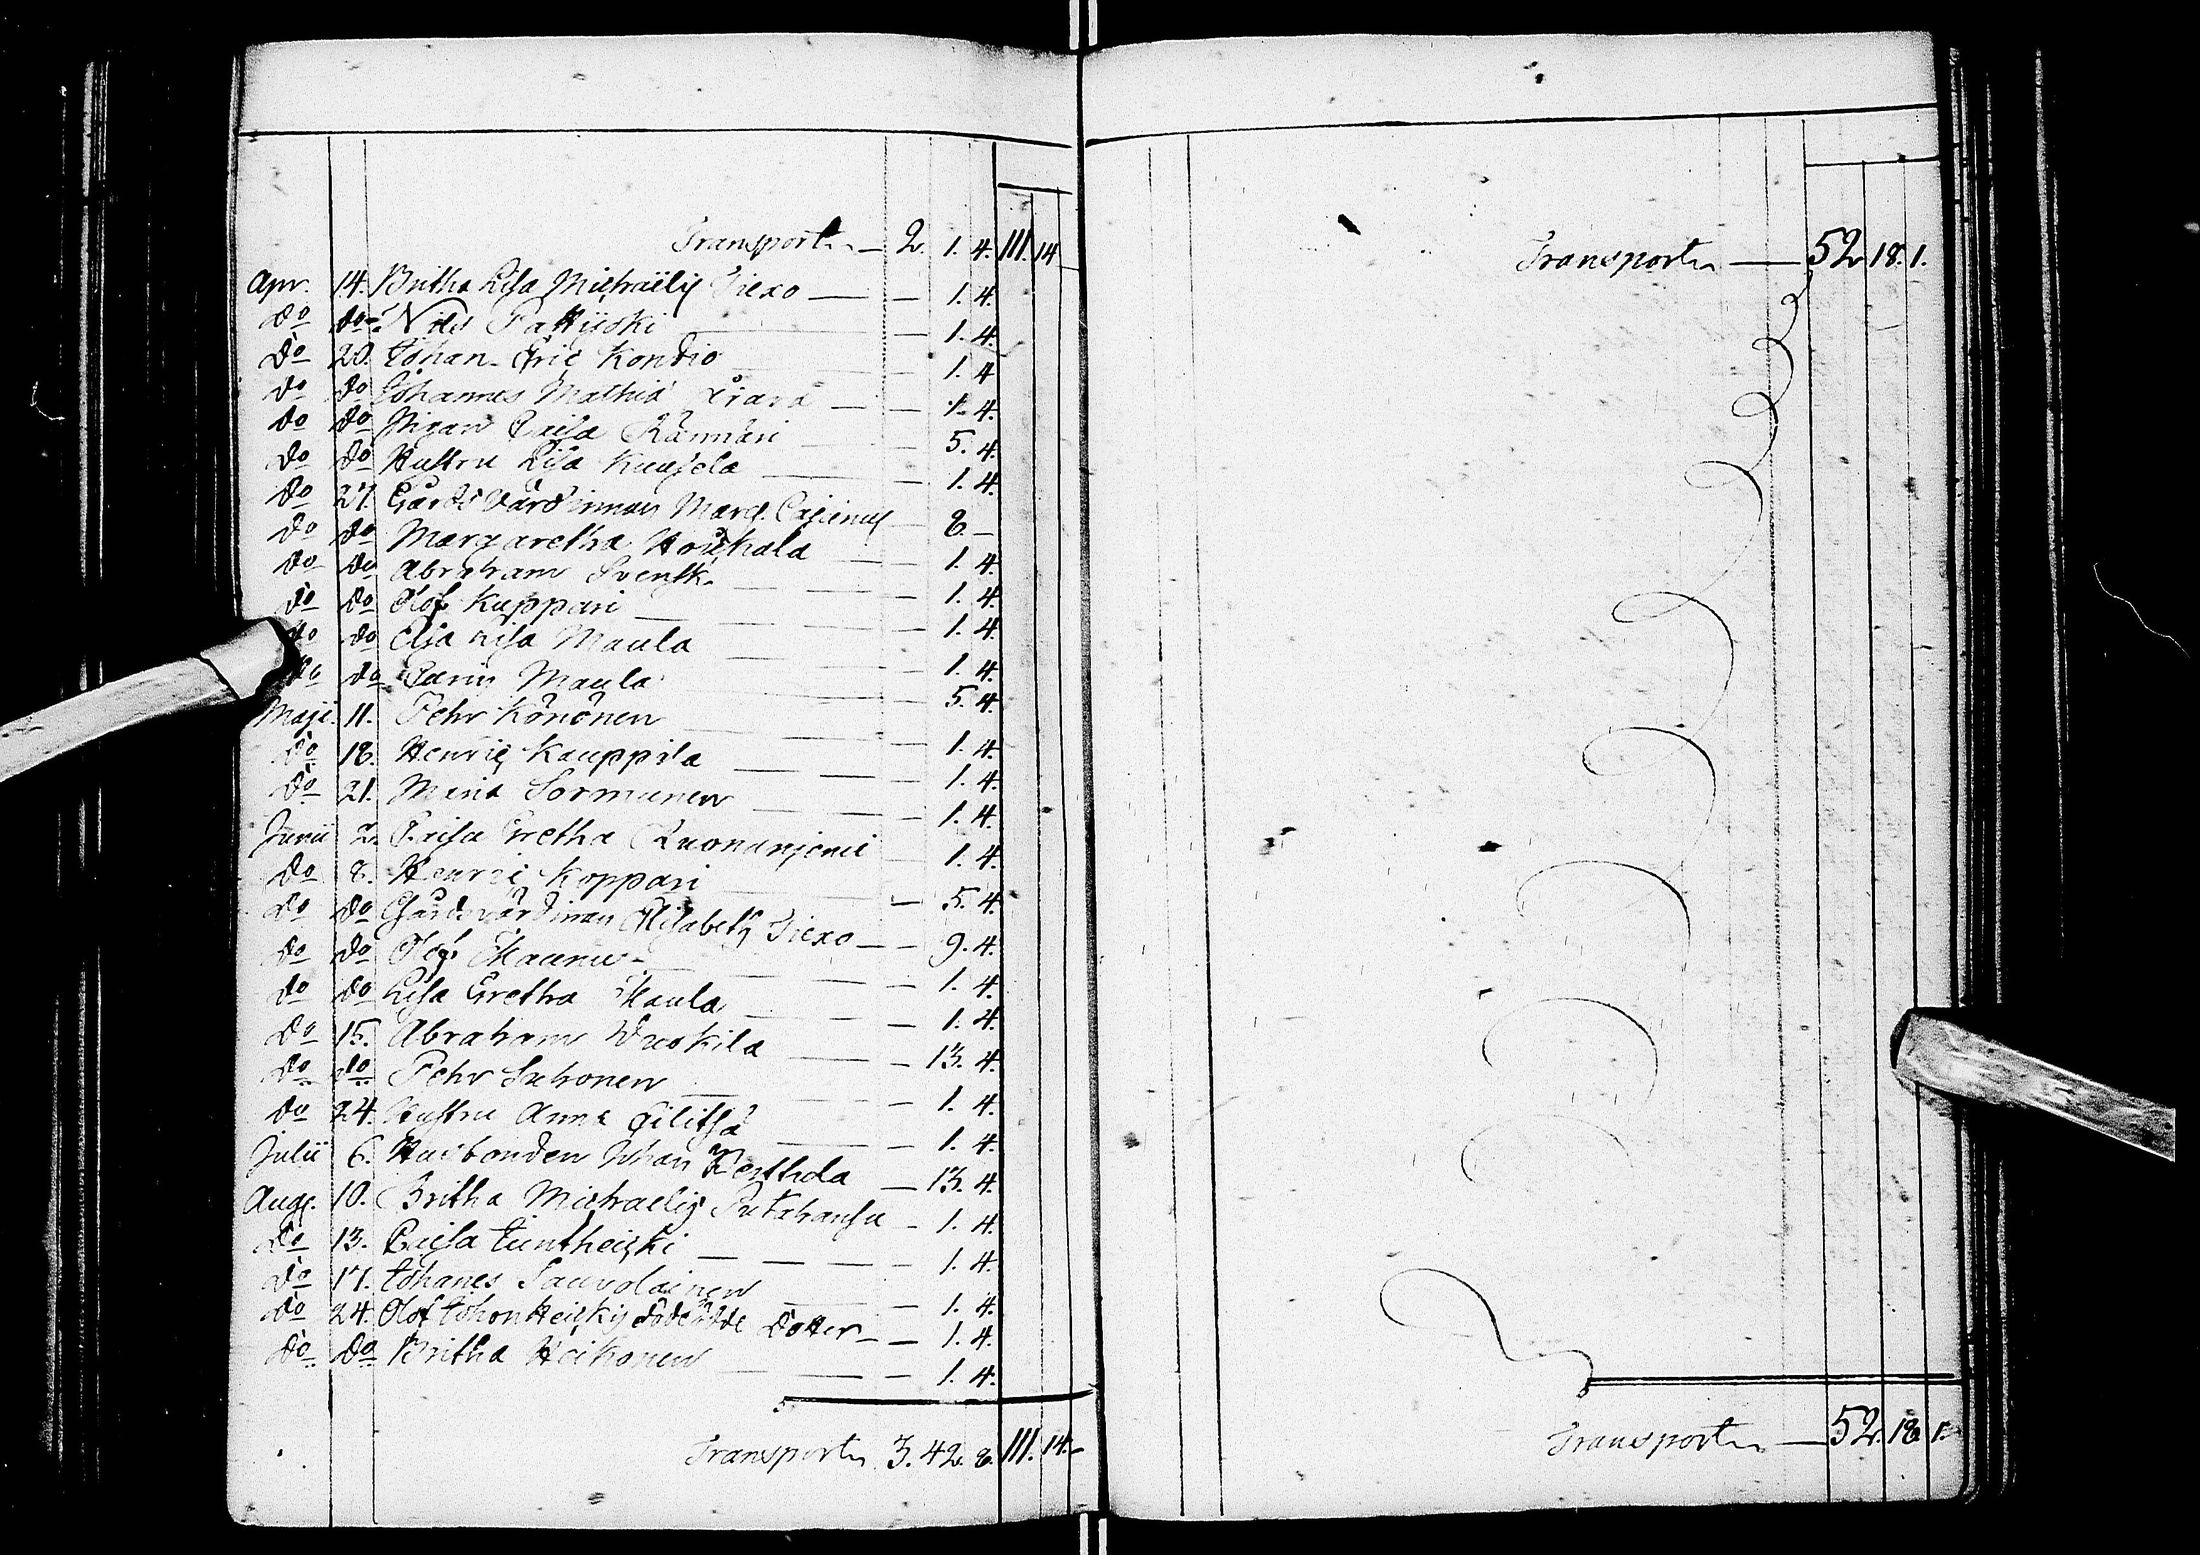 Transport — 2. 1. 4. 111. 14
Apr. 14. Britha Lisa Michaëlis Tiexo — — 1. 4.
do do Nils Pattijoski — 1. 4.
do 20. Johan Eric Kontio — 1. 4
do do Johannes Mathiæ — — 1. 4.
do do Pigan Caisa Rännäri — 5. 4.
do do Hustru Lisa — 1. 4.
do 27. Gårds Värdinnan Marg. Cajanus 8. —
do do Margaretha — 1. 4.
do do Abraham Svensk — 1. 4.
do do Olof Kuppari — 1. 4.
do do Lisa Maula — 1. 4.
do do Carin Maula — 5. 4.
Maji. 11. Pehr Könönen — 1. 4.
do 18. Henric Kauppila — 1. 4.
do 21. Maria Sormunen — 1. 4.
Junii 2. Caisa Gretha — 1. 4.
do 8. Henric Koppari — 5. 4.
do do Gårdsvärdinnan Elisabeth Tiexo — — 9. 4.
do do Olof — 1. 4.
do do Lisa Gretha Maula — 1. 4.
do 15. Abraham Wuokila — 13. 4.
do do Pehr Suhonen — 1. 4.
do 24. Hustru Anna — 1. 4.
Julii 6. Husbonden Johan — 13. 4.
Aug. 10. Britha Michaelis — 1. 4.
do 13. Caisa — 1. 4.
do 17. Johanes Sauvolainen — 1. 4.
do 24. Olof Johon Heiskis dödfödde Dotter — — 1. 4.
do do Britha Heikonen — 1. 4.
Transport 3. 42. 8. 111. 14. —
Transport — 52. 18. 1.
Transport — 52. 18. 1.